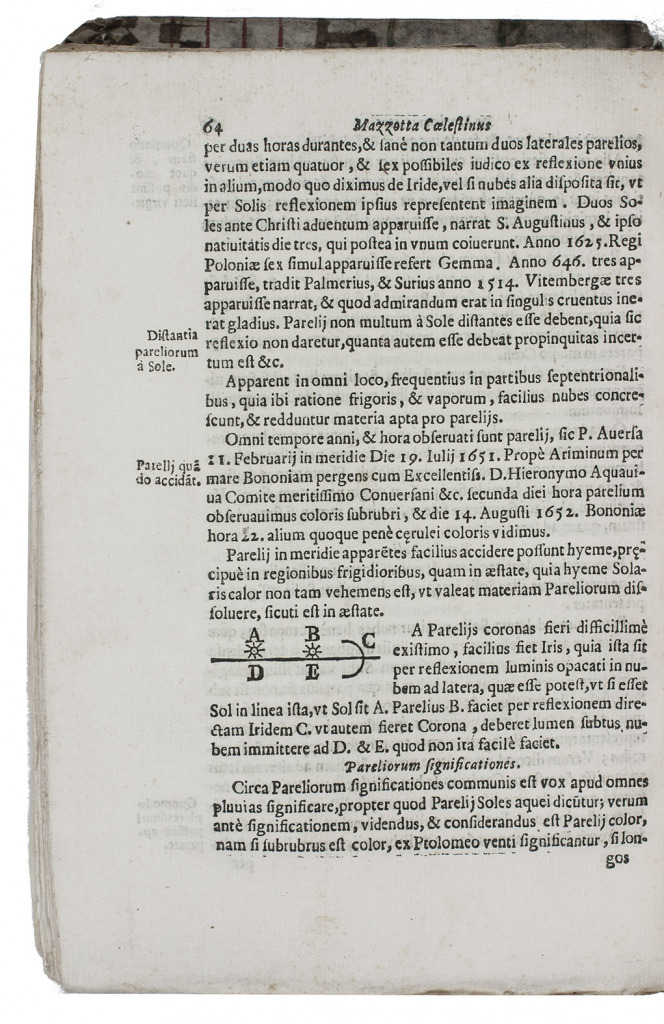 64 Mazzotta Cœlestinus
per duas horas durantes,& sanè non tantum duos laterales parelios,
verum etiam quatuor , & sex possibiles iudico ex reflexione vnius
in alium,modo quo diximus de Iride,vel si nubes alia disposita sit, vt
per Solis reflexionem ipsius representent imaginem . Duos So-
les ante Christi aduentum apparuisse , narrat S. Augustinus , & ipso
natiuitatis die tres, qui postea in vnum coiuerunt. Anno 1625. Regi
Poloniæ sex simul apparuisse refert Gemma . Anno 646. tres ap-
paruisse, tradit Palmerius, & Surius anno 1514. Vitembergæ tres
apparuisse narrat, & quod admirandum erat in singulis cruentus ine-
rat gladius. Parelij non multum à Sole distantes esse debent,quia sic
Distantia
pareliorum
à Sole.
reflexio non daretur,quanta autem esse debeat propinquitas incer-
tum est &c.
Apparent in omni loco, frequentius in partibus septentrionali-
bus , quia ibi ratione frigoris , & vaporum , facilius nubes concre-
scunt,& redduntur materia apta pro parelijs.
Omni tempore anni, & hora obseruati sunt parelij, sic P. Auersa
Parelij quā
do accidāt.
11. Februarij in meridie Die 19. Iulij 1651. Propè Ariminum per
mare Bononiam pergens cum Excellentiss. D.Hieronymo Aquaui-
ua Comite meritissimo Conuersani &c. secunda diei hora parelium
obseruauimus coloris subrubri , & die 14. Augusti 1652. Bononiæ
hora 22. alium quoque penè cęrulei coloris vidimus.
Parelij in meridie apparētes facilius accidere possunt hyeme,prę-
cipuè in regionibus frigidioribus, quam in æstate, quia hyeme Sola-
ris calor non tam vehemens est, vt valeat materiam Pareliorum dis-
soluere, sicuti est in æstate.
A B C
D E
A Parelijs coronas fieri difficillimè
existimo , facilius fiet Iris, quia ista sit
per reflexionem luminis opacati in nu-
bem ad latera, quæ esse potest,vt si esset
Sol in linea ista,vt Sol sit A. Parelius B. faciet per reflexionem dire-
ctam Iridem C. vt autem fieret Corona , deberet lumen subtus nu-
bem immittere ad D. & E. quod non ita facilè faciet.
Pareliorum significationes.
Circa Pareliorum significationes communis est vox apud omnes
pluuias significare,propter quod Parelij Soles aquei dicūtur; verum
antè significationem, videndus, & considerandus est Parelij color,
nam si subrubrus est color, ex Ptolomeo venti significantur , si lon-
gos